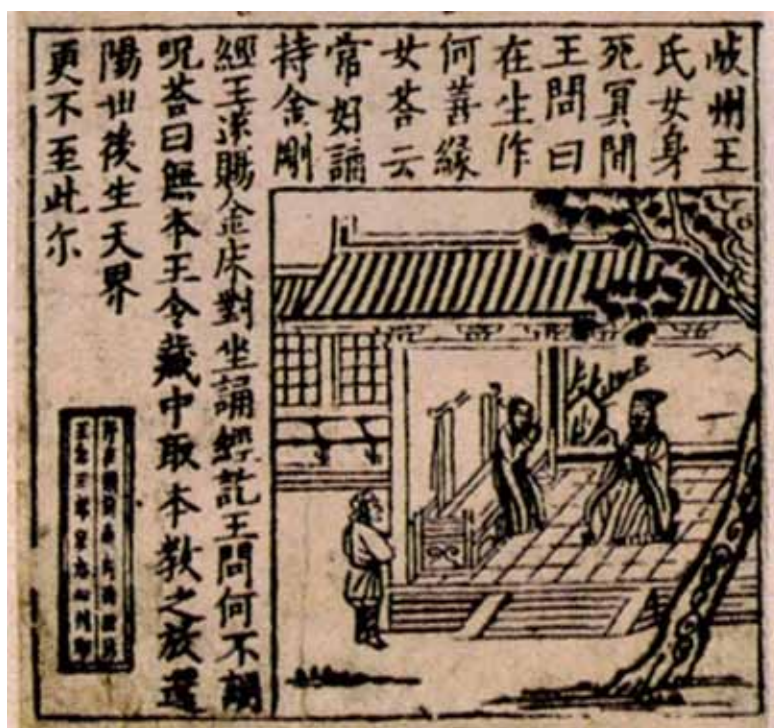 岐州王
氏女身
死冥間
王問曰
在生作
何善緣
女荅云
常好誦
持金剛
經王遂賜金床對坐誦經訖王問何不誦
呪荅曰無本王令藏中取本教之放還
陽世後生天界
更不至此尔